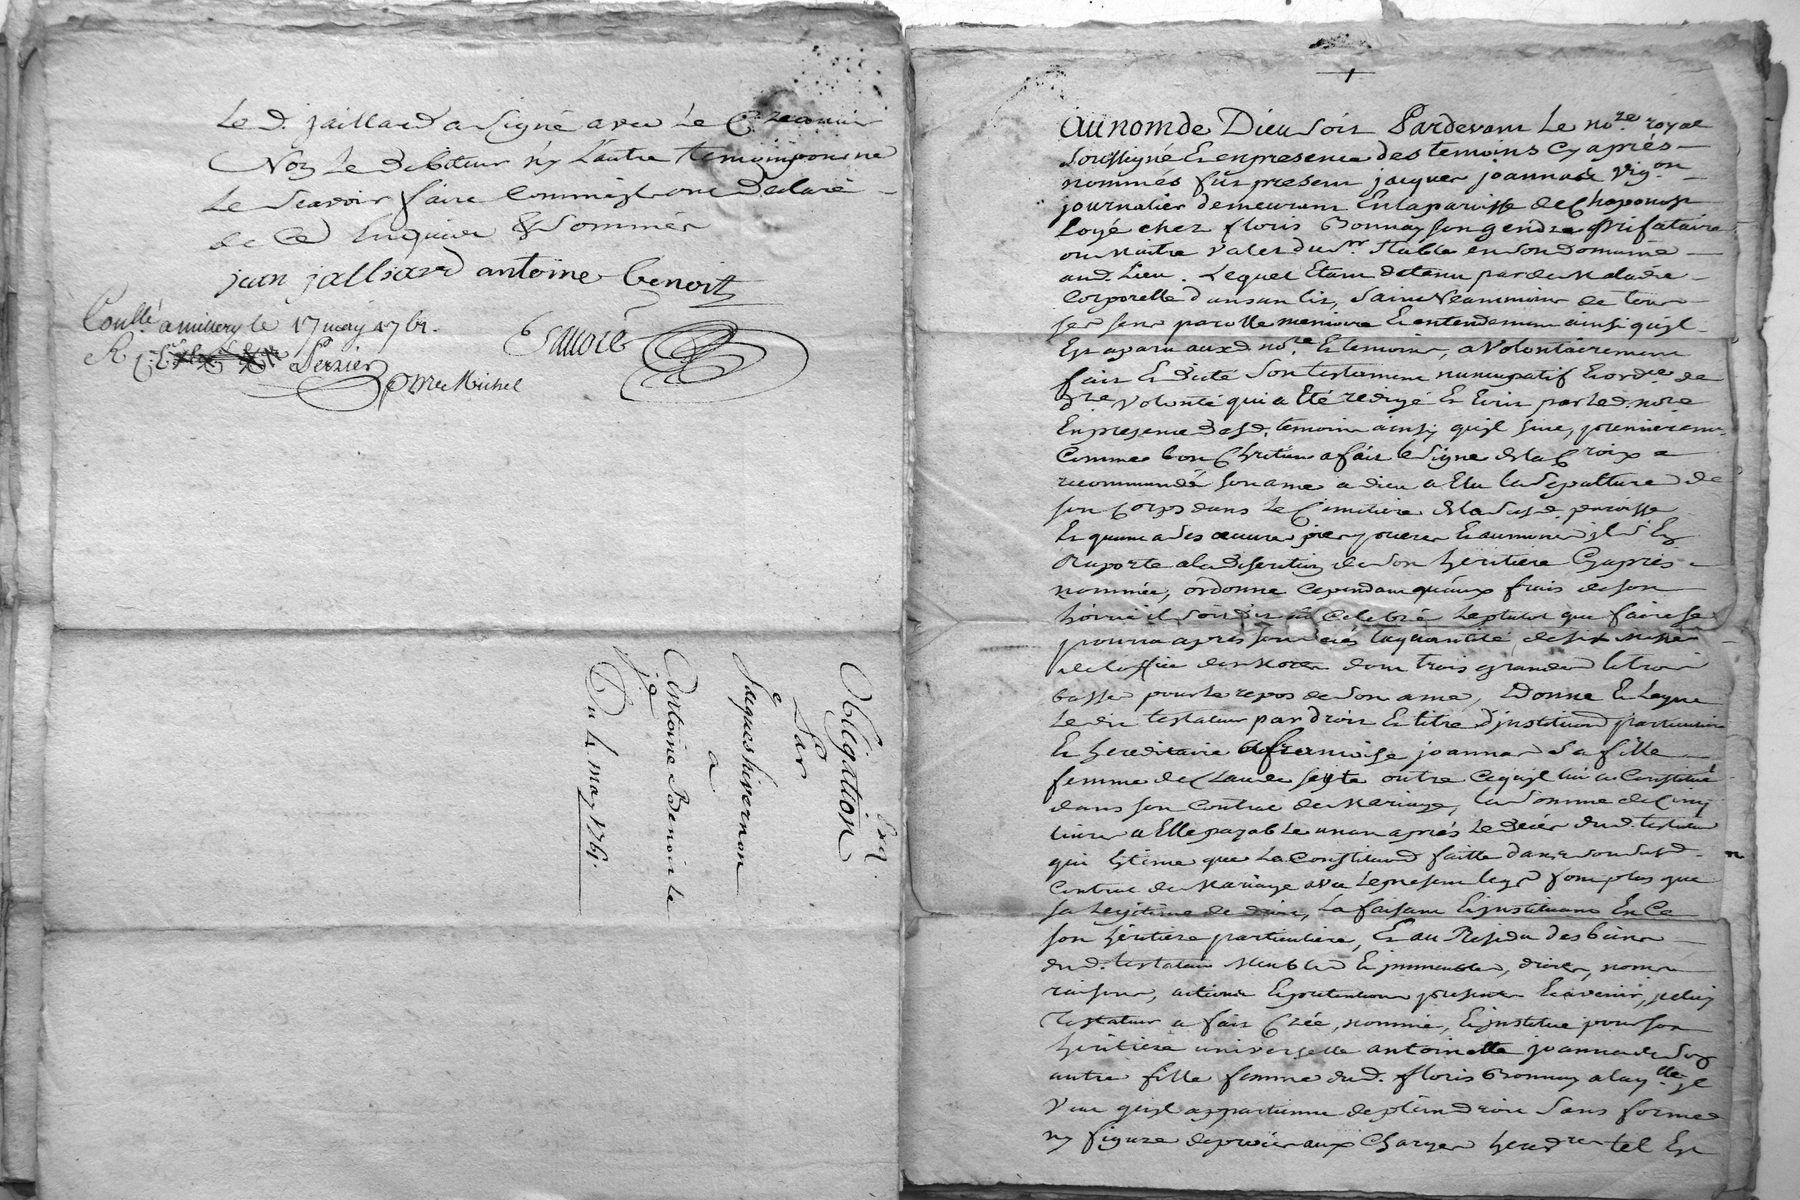 Le d. jaillard a signé avec le Creancier
Non le debiteur ny l'autre temoin pour ne
le scavoir faire Comm'ils ont declaré
de ce Enquis & Sommés
jean jalliard antoine benoit
Conllé a millery le 17 may 1761.
R Persier
pour Mr Michel
Obligation
Par
Jacques hivernon
a
Antoine Benoit
Du 4 may 1761.
Exp.
Au nom de Dieu soit Pardevant le nore royal
soussigné & en presence des temoins Cy aprés
nommés fut present jacques joannard Vigon
journalier demeurant En la paroisse de Chaponost
Logé chez floris Bonnay son gendre
ou maitre valet du sr Stable en son Domaine
aud. Lieu. Lequel Etant detenu par de Maladie
Corporelle dans un lit, Saint Neammoins de tous
ses sens parolle memoire & entendement ainsi quil
Est aparu auxd. nore & temoins, a Volontairement
fait & dicté son testament nuncupatif & ordce de
dre Volonté qui a Eté redigé & Ecrit par led. nore
En presence desd. temoins ainsy quil suit, premierement
Comme bon Chrétien a fait le signe de la Croix a
recommandé son ame a dieu a Elu la Sepulture de
son Corps dans le Cimitiere de la susd. paroisse
Et quant a ses œuvres pies prieres & aumones il s'En
Raporte a la discrétion de son héritiere Cy aprés
nommée, ordonne Cependant qu'aux frais de son
hoirie il soit dit & Celebré le plutot que faire se
pourra aprés son decés la quantité de six Messes
de l'office des Morts dont trois grandes & trois
basses pour le repos de son ame, Donne & Legue
Le dit testateur par droit & titre d'institution particuliere
& hereditaire a francoise joannard sa fille
femme de Claude seyte outre Ce quil lui a Constitué
dans son Contrat de Mariage, la Somme de Cinq
livres a Elle payable un an aprés le decés dud. testateur
qui Estime que La Constitution faitte dans son susd.
Contrat de Mariage avec le present legs sont plus que
sa Legitime de droit, La faisant & instituant En Ce
son héritiere particuliere, Et au Residu des biens
dud. testateur Meubles & immeubles, droits, noms
raisons, actions & pretentions presents & avenir, jceluy
Testateur a fait Créé, nommé, & institué pour son
héritiere universelle antoinette joannard son
autre fille femme dud. floris Bonnay a laqlle il
Veut quil appartienne de plein droit Sans forme
ny figure de procés aux Charges hereditres tel Est